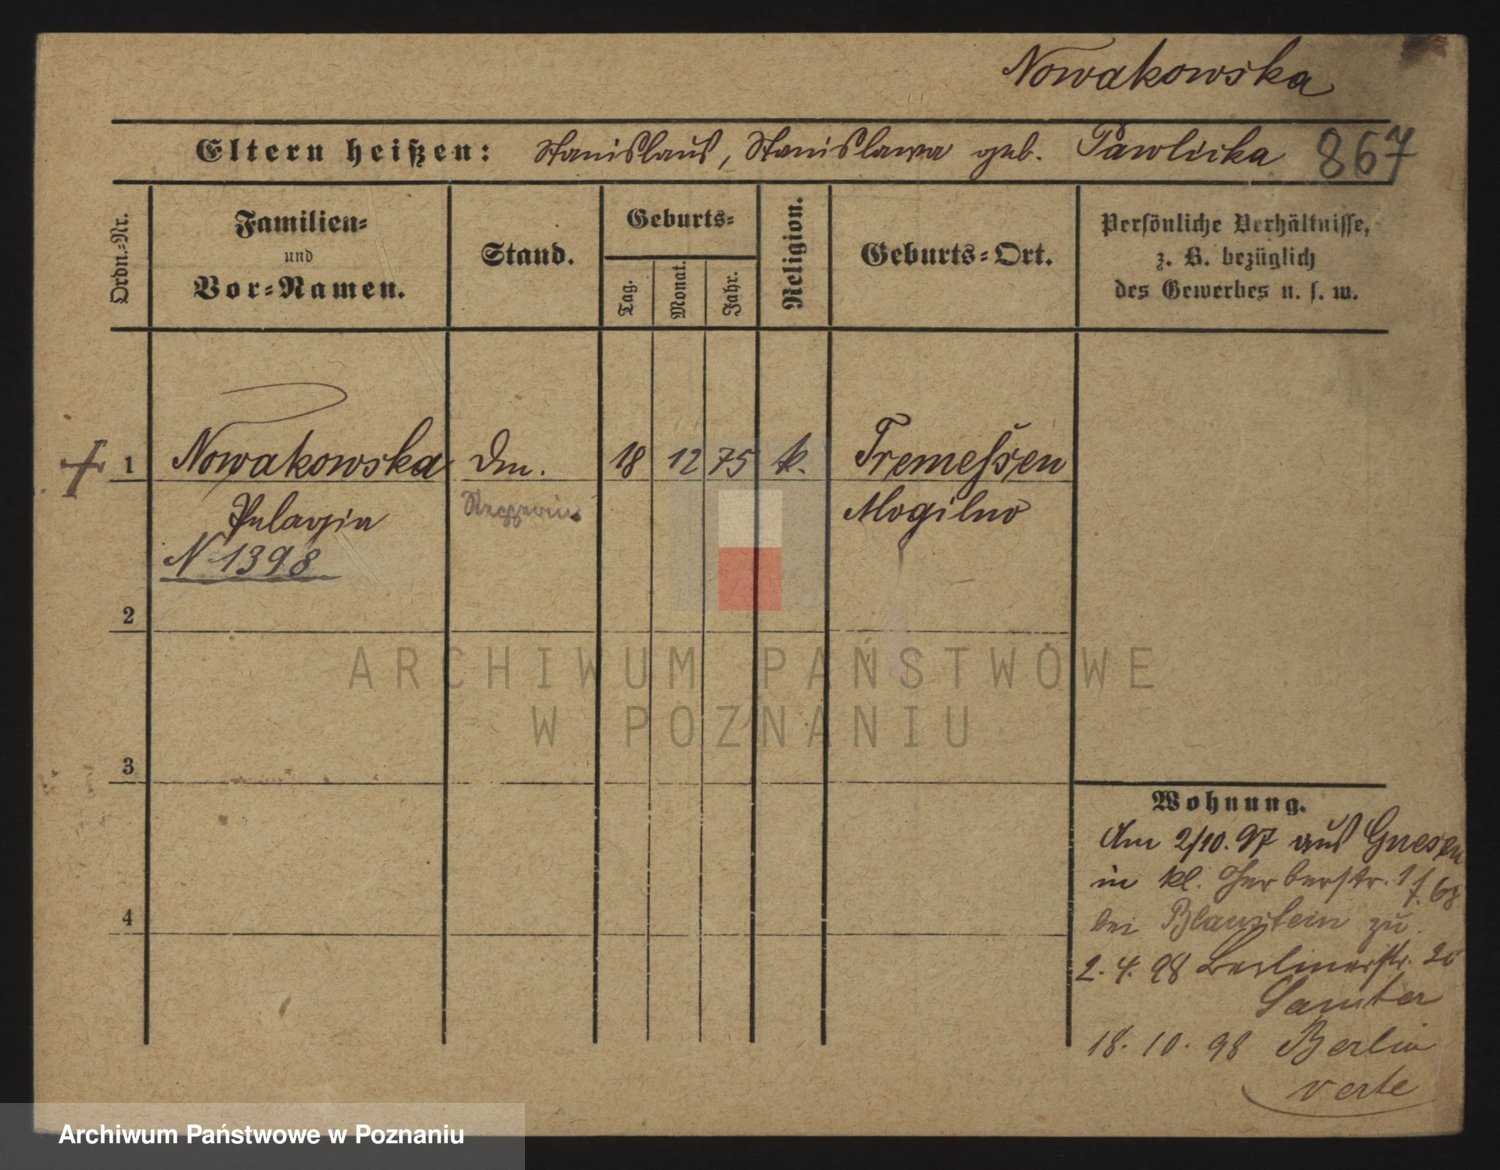 Nowakowska
Eltern heißen: Stanislaus, Stanislawa geb. Pawlicka 867
Ordn.-Nr.
Familien-
und
Vor-Namen.
Stand.
Geburts-
Tag.
Monat.
Jahr.
Religion.
Geburts-Ort.
Persönliche Verhältnisse,
z. B. bezüglich
des Gewerbes u. s. w.
1 Nowakowska 18 12 75 k. Tremessen
Pelagia Mogilno
N 1398
2
3
4
Wohnung.
Am 2/10. 97 aus Gnesen
in kl. Gerberstr.
bei Blaustein zu.
2. 4. 98 Berlinerstr.
Samter
18. 10. 98 Berlin
verte
ARCHIWUM PAŃSTWOWE
W POZNANIU
Archiwum Państwowe w Poznaniu